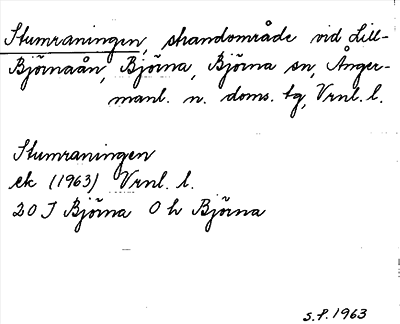 Stumraningen, strandområde vid Lill-
Björnaån, Björna, Björna sn, Ånger-
manl. n. doms. tg, Vrnl. l.
Stumraningen
ek (1963) Vrnl. l.
20 J Björna 0 h Björna
S.P. 1963